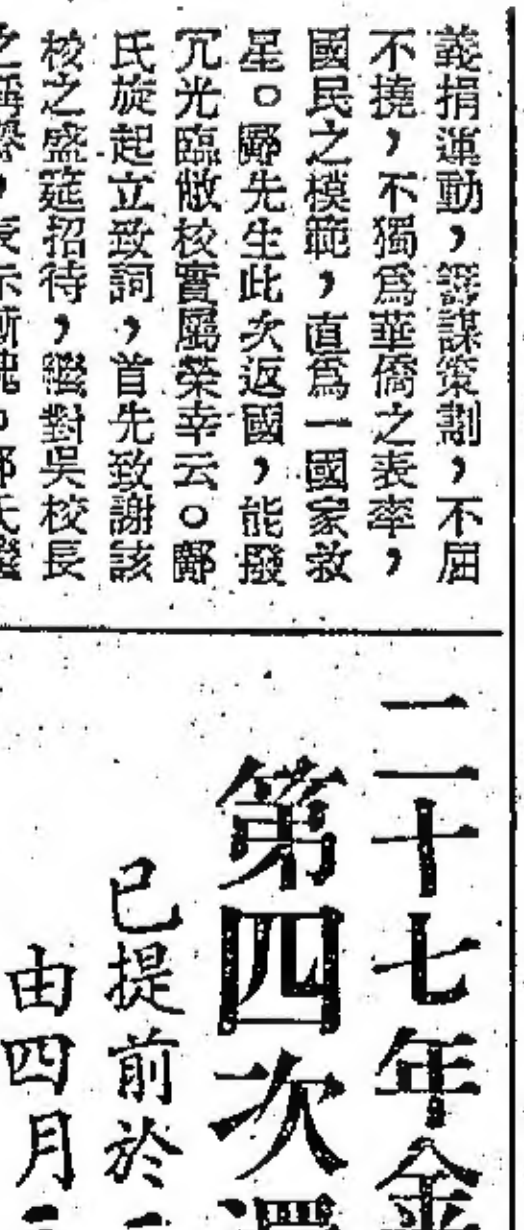 義捐運動，籌謀策劃，不屈
不撓，不獨爲華僑之表率，
國民之模範，直爲一國家救
星。鄺先生此次返國，能撥
冗光臨敝校實屬榮幸云。鄺
氏旋起立致詞，首先致謝該
校之盛筵招待，繼對吳校長
二十七年金
第四次還
已提前於
由四月